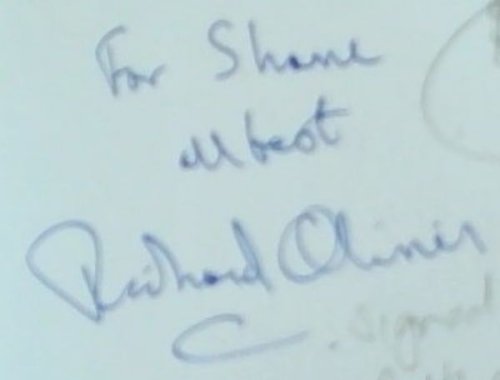 For Shane
all best
Richard Olivier
signed